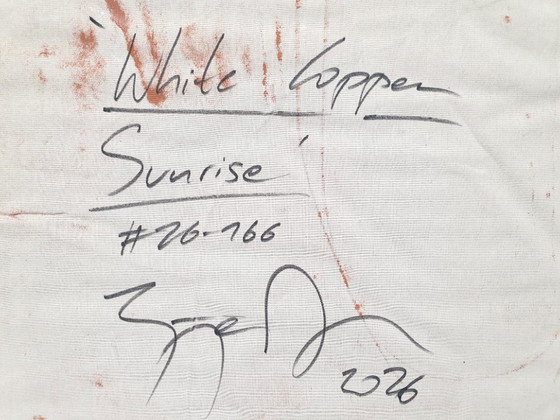 'White Copper
Sunrise'
#26-166
2026